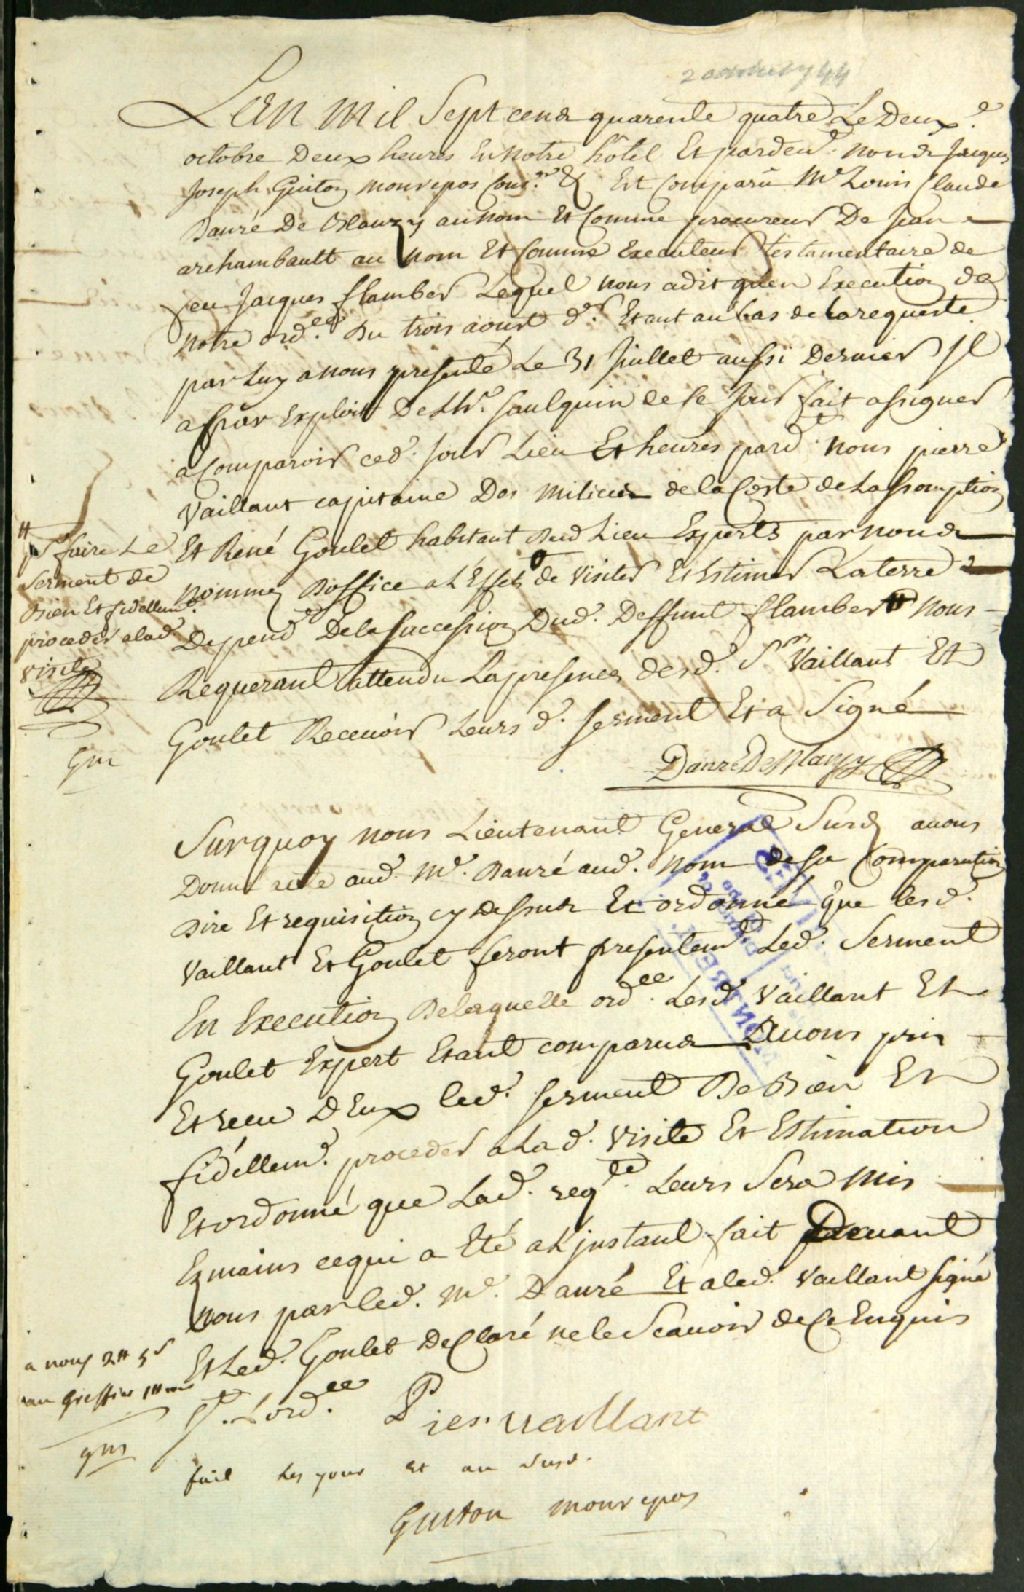 2 octobre 1744
L'an mil Sept cens quarente quatre Le Deux.e
octobre Deux heures En notre hôtel Et pardev.t nous Jacques
Joseph Guiton monrepos Con.er &c Est Comparu M.e Louis Claude
Danré De Blanzy au nom Et Comme procureur De Jean
archambault au nom Et Comme Executeur testamentaire de
feu Jacques flamber Lequel nous a dit qu'en Execution de
notre ord.ce Du trois aoust d.r Etant au bas de la requeste
par Luy a nous presenté Le 31 Juillet aussi Dernier Jl
a par Exploit De Lhr. faulquin de ce Jour fait assigner
a Comparoir ced. Jour Lieu Et heures pard.t nous pierre
Vaillant capitaine Des milices de la Coste de Lassomption
Et René Goulet habitant dud Lieu Experts par nous
nommez D'office a L'Effet de Visiter Et Estimer La terre
Depend.te De la Succession Dud. Deffunt flamber # nous
Requerant attendu La presence desd. S.rs Vaillant Et
Goulet Recevoir Leurs d. serment Et a Signé
# p.r faire Le
serment de
Bien Et fidellem.t
proceder a lad.
visite
Gm
Danré De Blanzy
Sur quoy nous Lieutenant General Susd avons
Donné acte aud. M.e Danré aud. nom de sa Comparution
Dire Et requisition cy dessus Et ordonné que lesd.
Vaillant Et Goulet feront presentem.t Led. Serment
En Execution De laquelle ord.ce Lesd. Vaillant Et
Goulet Expert Etant comparus Avons pris
Et receu D'Eux led. serment De Bien Et
fidellem.t proceder a Lad. Visite Et Estimation
Et ordonné que Lad. req.te Leurs Sera mis
Ez mains ce qui a Eté a L'jnstant fait Devant
nous par led. M.e Danré Et a led. Vaillant signé
Et Led. Goulet Declaré ne le Scavoir de Ce Enquis
S.t Lord.ce
a nous 2# 5s
au Greffier
gm
Pier. vaillant
fait les jour et an susd.
Guiton monrepos